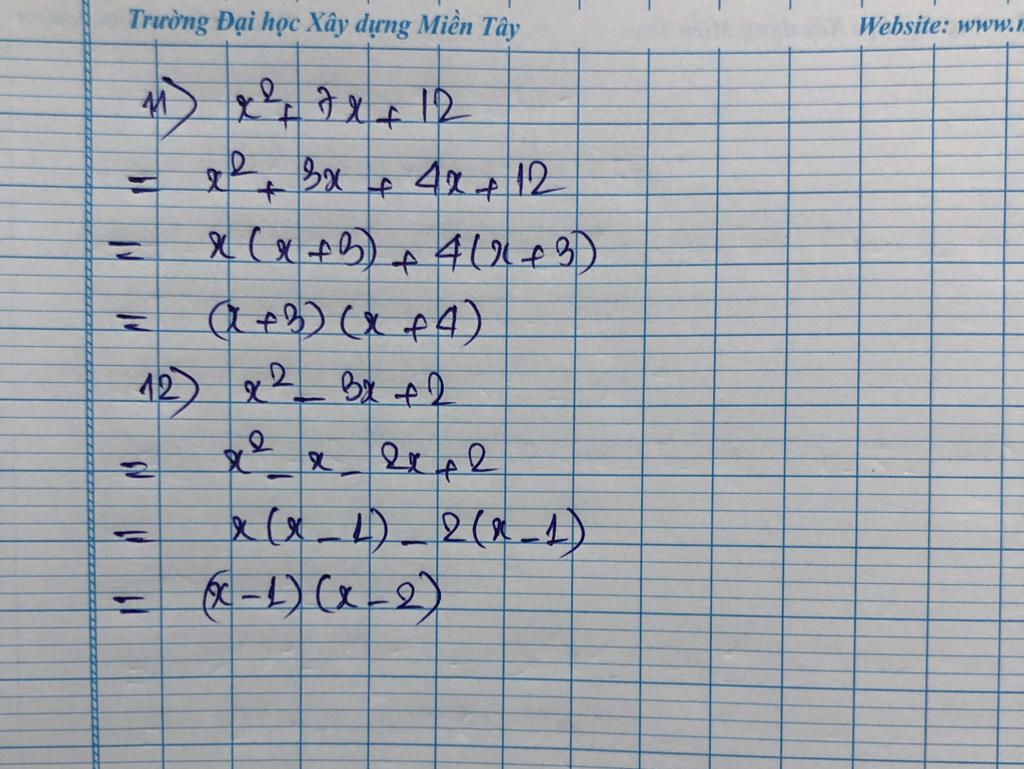 Trường Đại học Xây dựng Miền Tây Website: www.
11) x² + 7x + 12
= x² + 3x + 4x + 12
= x(x+3) + 4(x+3)
= (x+3)(x+4)
12) x² - 3x + 2
= x² - x - 2x + 2
= x(x-1) - 2(x-1)
= (x-1)(x-2)